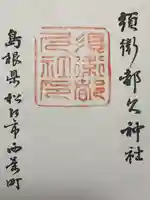 須衛都久神社
須衛都
久神社
島根県松江市西茶町